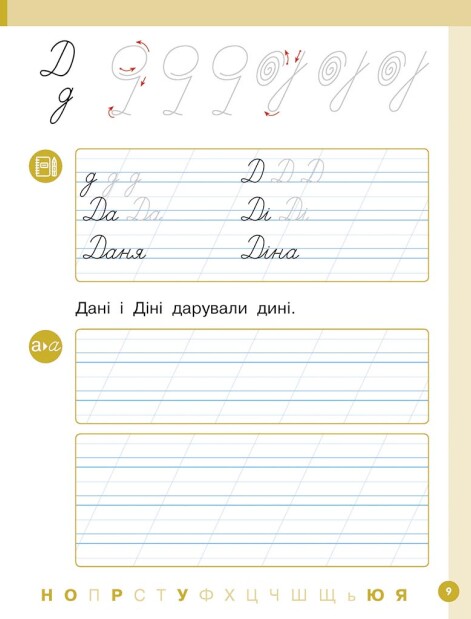 Д
д
д д д Д Д Д
Да Да Ді Ді
Даня Діна
Дані і Діні дарували дині.
а а
Н О П Р С Т У Ф Х Ц Ч Ш Щ ь Ю Я
9